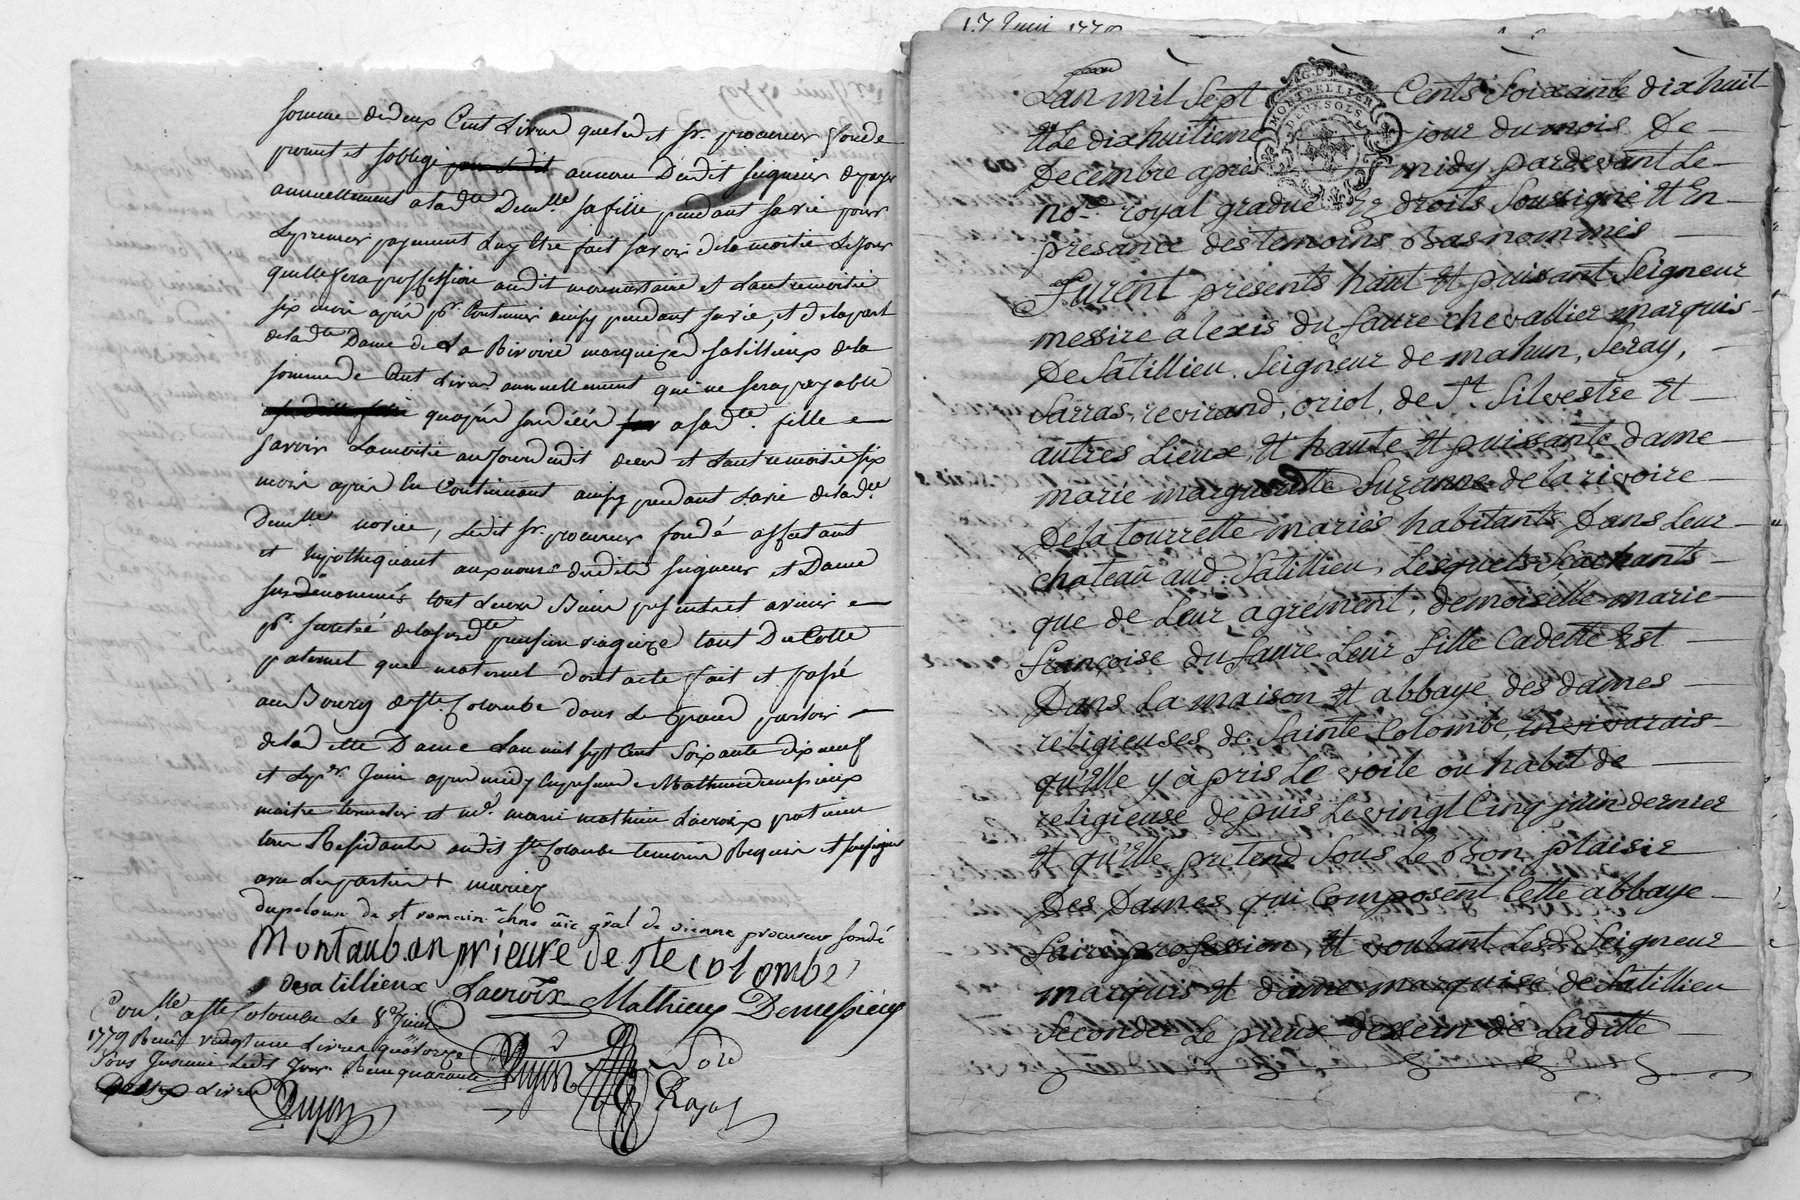 somme de deux Cent Livres que led it sr. procureur fondé
promet et soblige au nom Dudit seigneur de payer
annuellement a lad.te Demlle sa fille pendant sa vie pour
Le premier payement Luy Etre fait savoir de la moitié Le Jour
quelle fera proffession audit monastaire et Lautre moitié
six mois aprés pr. Continuer ainsy pendant sa vie, et de la part
de lad.te Dame de La Rivoire marquize de satillieux de la
somme de Cent Livres annuellement qui ne sera payable
quaprés son décés a sad.te fille
savoir La moitié au Jour dudit décés et Lautre moitié six
mois aprés En Continuant ainsy pendant la vie de lad.te
Demlle novice, Ledit sr. procureur fondé affectant
et hypothequant aux noms desdits seigneur et Dame
susdénommés tout Leurs Biens présents et avenir
pr. sureté de la susd.te pension viagere tant Du Cotté
paternel que maternel dont acte fait et passé
au Bourg de Ste. Colombe dans Le Grand parloir
de lad ette Dame Lan mil sept Cent soixante dix neuf
et Le pr.er Juin apres midy En presence de Mathieu demessieux
maitre tonnelier et me. marie mathieu Lacroix praticien
tous Residants audit Ste Colombe temoins Requis et soussignés
avec Les parties +
dupeloux de st romain chne vic gñal de vienne procureur fondé
Montauban prieure de ste colombe
desatillieux Lacroix Mathieu Demessieux
Conlle. a Ste Colombe Le 8e Juin
1779 Reçu vingt une Livres quatorze
sous Insinué Ledt Jour. Reçu quarante
Livres
17 Juin 1778
MONTPELLIER
DEUX SOLS
Lan mil sept Cents soixante dix huit
et Le dix huitieme jour du mois De
Decembre après midy pardevant Le
nore. royal gradué Ez droits soussigné et En
presance des temoins Bas nommés
Furent presents haut et puissant seigneur
messire alexis du faure chevallier marquis
De Satillieu, seigneur de mahun, seray,
sarras, revirand, oriol, de St. Silvestre et
autres Lieux, et haute et puissante dame
marie margueritte Suzanne de la rivoire
De la tourrette mariés habitants Dans Leur
chateau aud. Satillieu, Lesquels sachants
que de Leur agrément, demoiselle marie
françoise du faure Leur fille Cadette Est
Dans La maison et abbaye des dames
religieuses de Sainte Colombe, En vivarais
qu'Elle y à pris Le voile ou habit de
religieuse depuis Le vingt Cinq juin dernier
et qu'Elle pretend sous Le Bon plaisir
Des Dames qui Composent Cette abbaye
faire profession, et voulant Lesd. Seigneur
marquis et dame marquise de Satillieu
seconder Le pieux dessein de Laditte